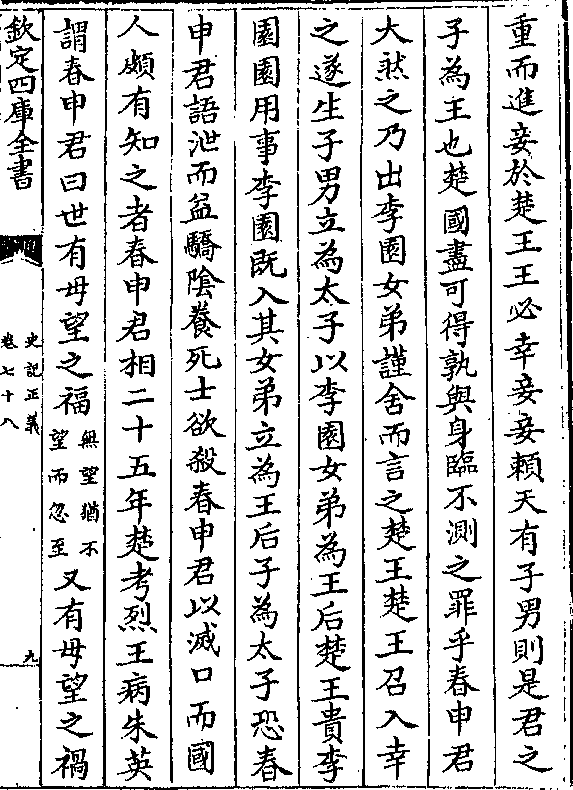 重而進妾於楚王王必幸妾妾賴天有子男則是君之
子為王也楚國盡可得孰與身臨不測之罪乎春申君
大然之乃出李園女弟謹舍而言之楚王楚王召入幸
之遂生子男立為太子以李園女弟為王后楚王貴李
園園用事李園既入其女弟立為王后子為太子恐春
申君語泄而益驕陰養死士欲殺春申君以滅口而國
人頗有知之者春申君相二十五年楚考烈王病朱英
謂春申君曰世有毋望之福無望猶不望而忽至又有毋望之禍
欽定四庫全書
史記正義
卷七十八
九